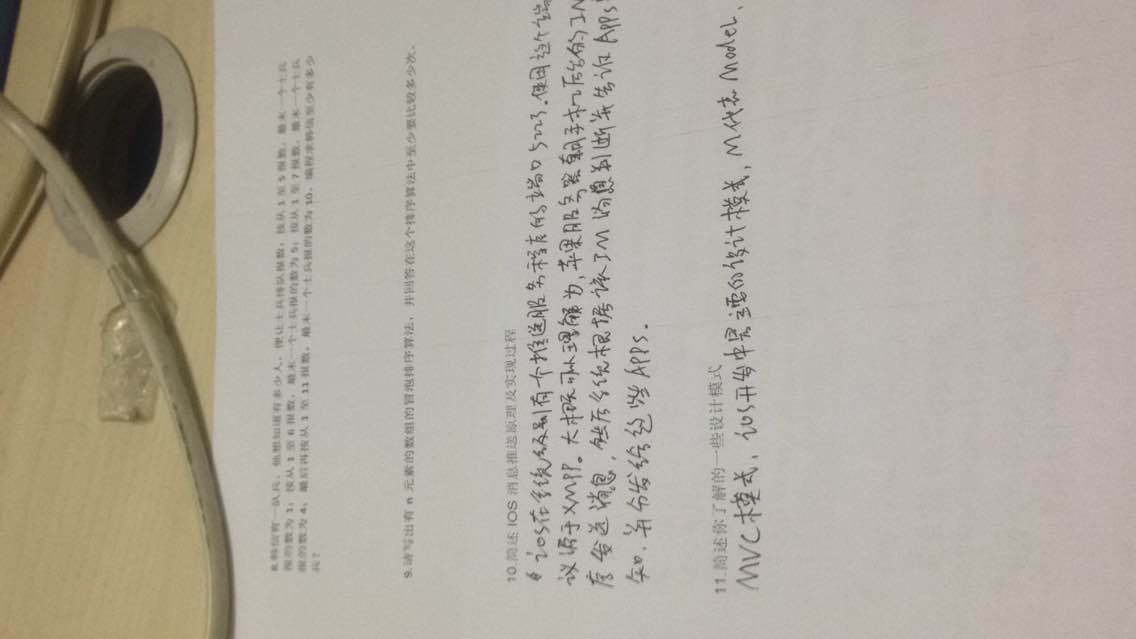 8.韩信有一队兵，他想知道有多少人，便让士兵排队报数：按从 1 至 5 报数，最末一个士兵
报的数为 1；按从 1 至 6 报数，最末一个士兵报的数为 5；按从 1 至 7 报数，最末一个士兵
报的数为 4；最后再按从 1 至 11 报数，最末一个士兵报的数为 10，编程求韩信至少有多少
兵？
9.请写出有 n 元素的数组的冒泡排序算法，并回答在这个排序算法中至少要比较多少次。
10.简述 IOS 消息推送原理及实现过程
ios在系统级别有个推送服务程序的端口5223.使用这个端
议源于XMPP。大概可以理解为,苹果服务器朝手机后台的IM
度发送消息，然后系统根据该IM消息判断并告诉Apps
知.并分发给这些Apps.
11.简述你了解的一些设计模式
MVC模式，ios开发中最主要的设计模式，M代表Model，